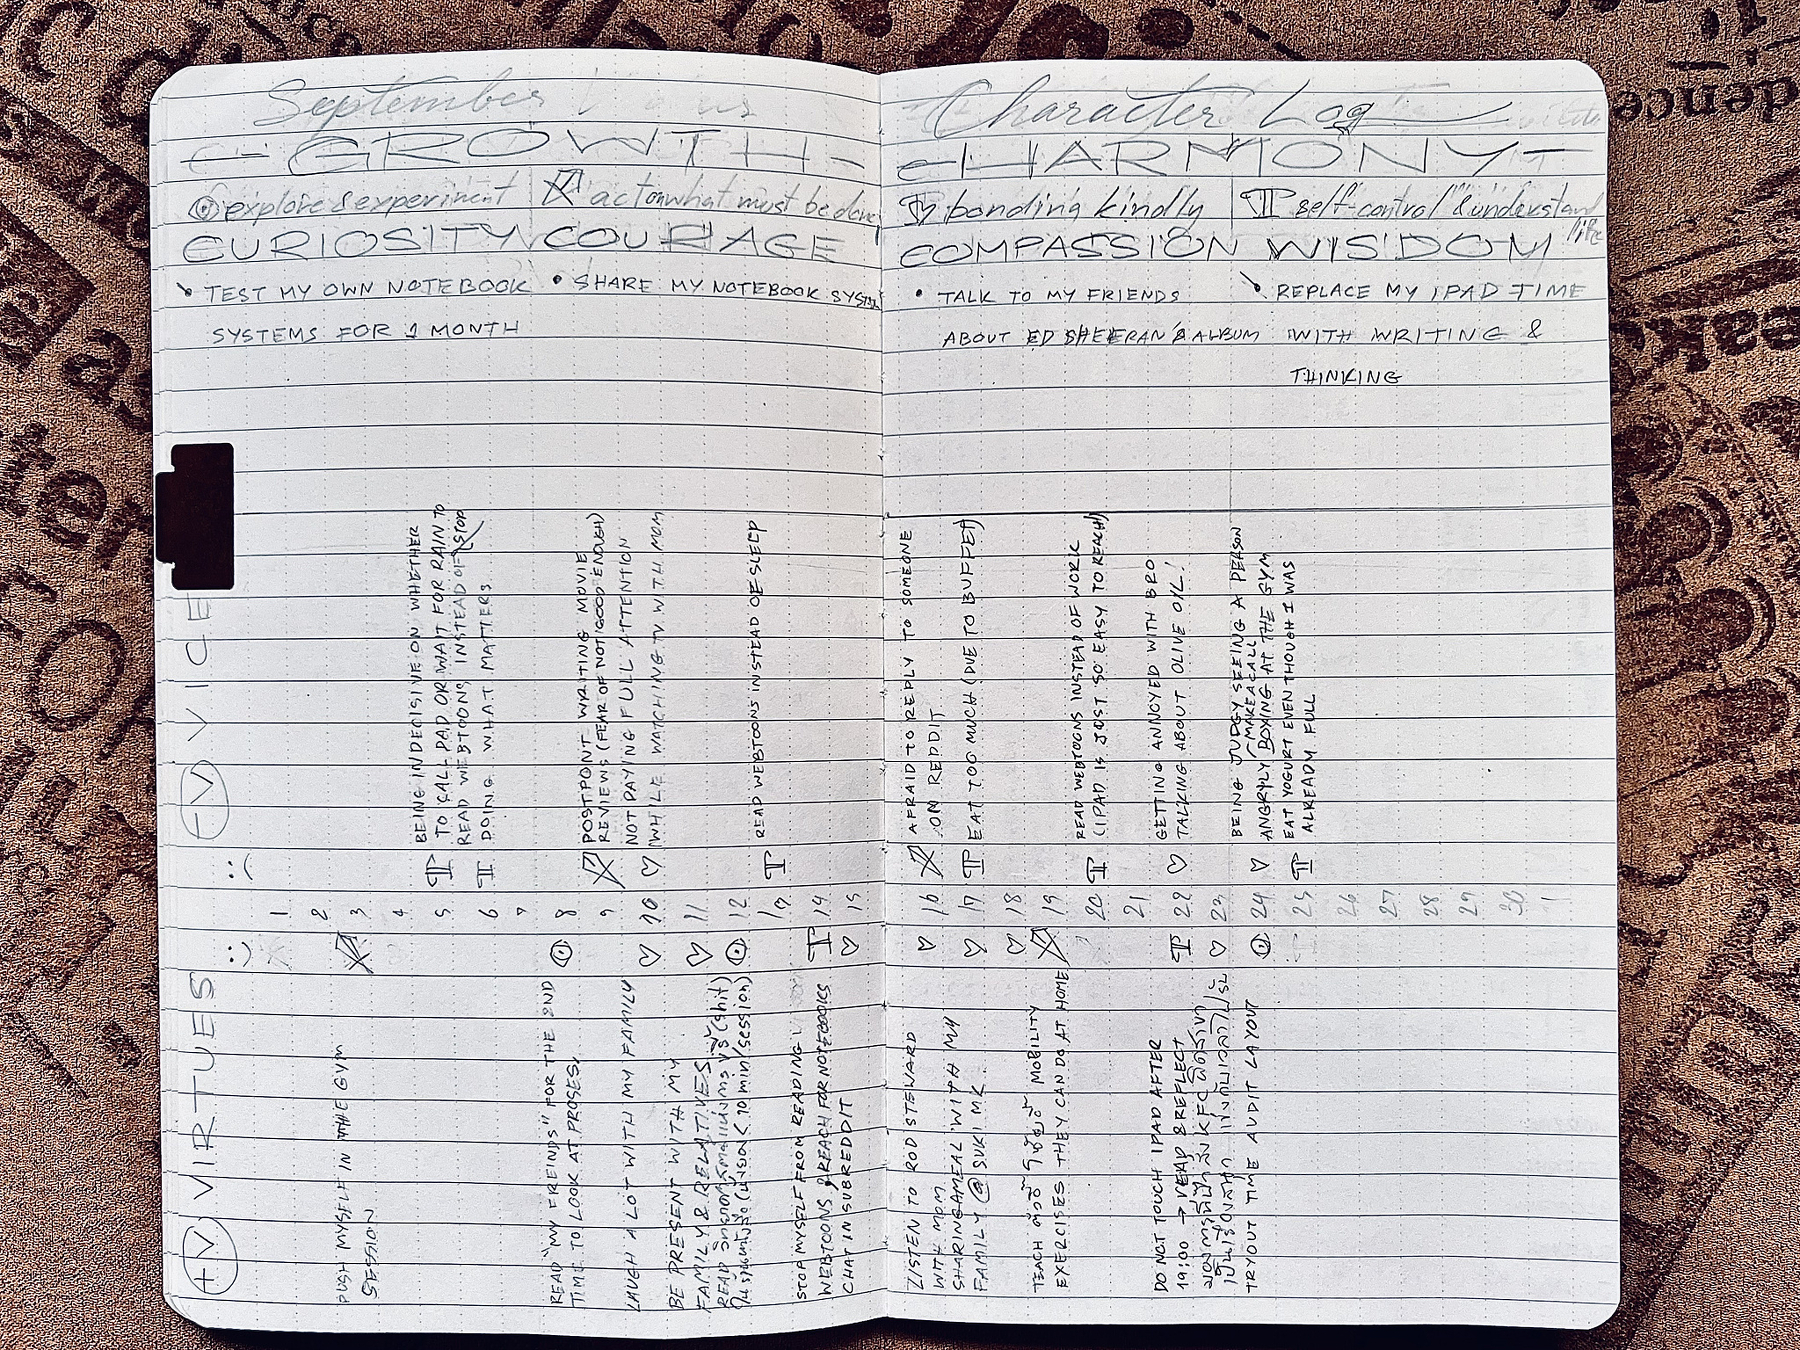 September
Character Log
GROWTH
HARMONY
explore & experiment
act on what must be done
bonding kindly
self-control & understand life
CURIOSITY
COURAGE
COMPASSION
WISDOM
• TEST MY OWN NOTEBOOK
SYSTEMS FOR 1 MONTH
• SHARE MY NOTEBOOK SYSTEM
• TALK TO MY FRIENDS
ABOUT ED SHEERAN'S ALBUM
• REPLACE MY IPAD TIME
WITH WRITING &
THINKING
-V VICE
:(
BEING INDECISIVE ON WHETHER
TO CALL PAD OR WAIT FOR RAIN TO
STOP
READ WEBTOONS INSTEAD OF
DOING WHAT MATTERS
POSTPOINT WRITING MOVIE
REVIEWS (FEAR OF NOT GOOD ENOUGH)
NOT PAYING FULL ATTENTION
WHILE WACHING TV WITH MOM
READ WEBTOONS INSTEAD OF SLEEP
AFRAID TO REPLY TO SOMEONE
ON REDDIT
EAT TOO MUCH (DUE TO BUFFET)
READ WEBTOONS INSTEAD OF WORK
(IPAD IS JUST SO EASY TO REACH)
GETTING ANNOYED WITH BRO
TALKING ABOUT OLIVE OIL!
BEING JUDGY SEEING A PERSON
MAKE A CALL
ANGRYLY BOXING AT THE GYM
EAT YOGURT EVEN THOUGH I WAS
ALREADY FULL
1 2 3 4 5 6 7 8 9 10 11 12 13 14 15
16 17 18 19 20 21 22 23 24 25 26 27 28 29 30 1
+V VIRTUES
:)
PUSH MYSELF IN THE GYM
SESSION
READ "MY FREINDS" FOR THE 2ND
TIME TO LOOK AT PROSES.
LAUGH A LOT WITH MY FAMILY
BE PRESENT WITH MY
FAMILY & RELATIVES
READ
(shit)
10 min/session)
STOP MYSELF FROM READING
WEBTOONS & REACH FOR NOTEBOOKS
CHAT IN SUBREDDIT
LISTEN TO ROD STEWARD
WITH MOM
SHARING A MEAL WITH MY
FAMILY @ SUKI MK
TEACH MOBILITY
EXERCISES THEY CAN DO AT HOME
DO NOT TOUCH IPAD AFTER
19:00 → READ & REFLECT
KFC
TRYOUT TIME AUDIT LAYOUT